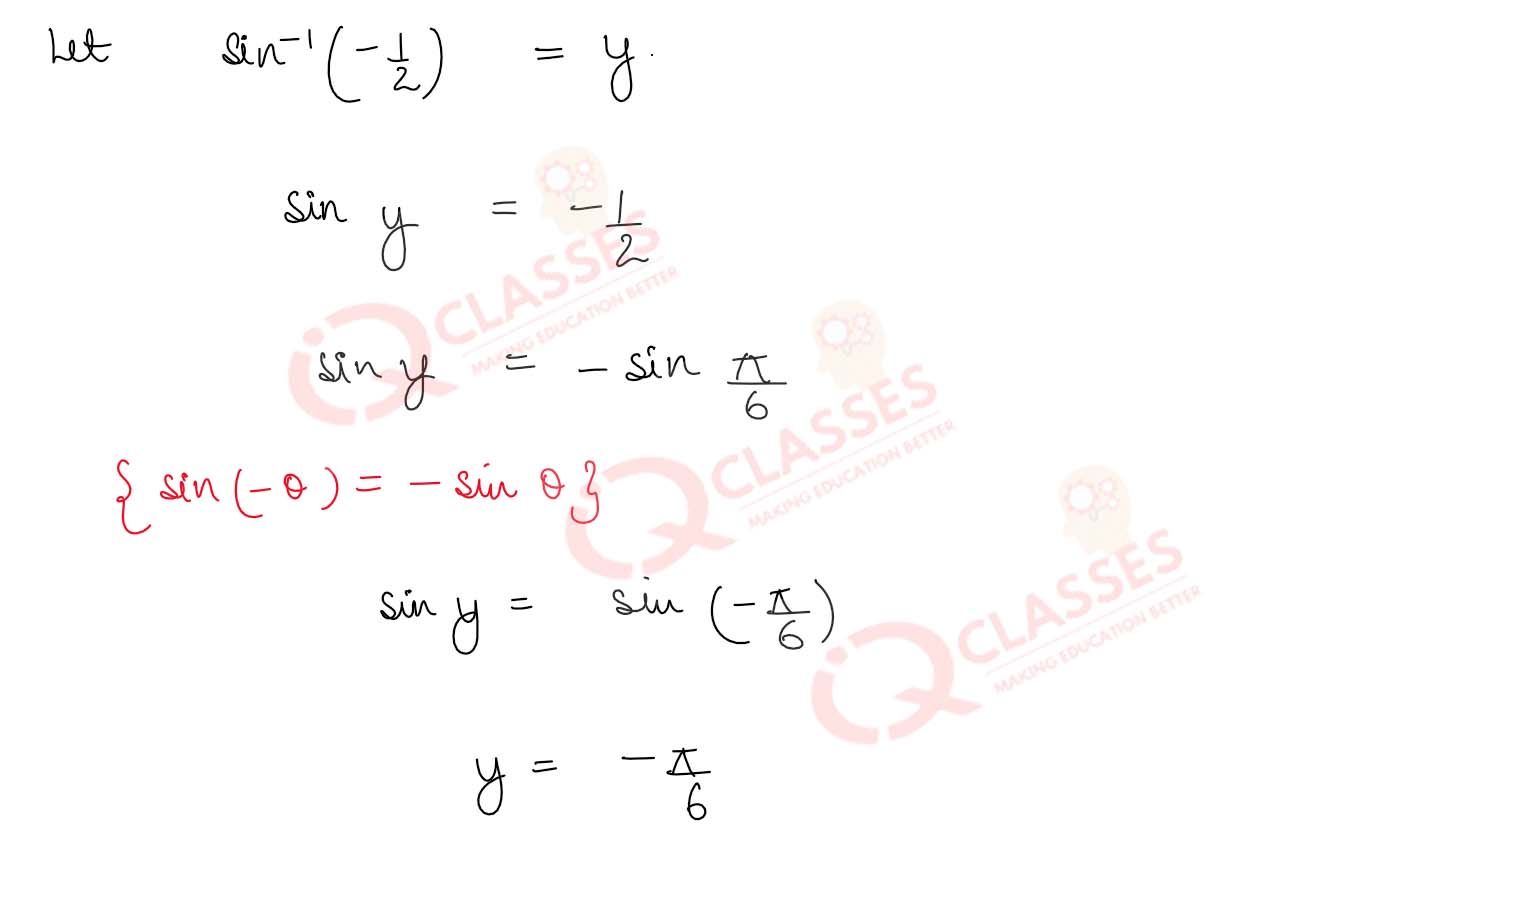 Let sin⁻¹(-1/2) = y.
sin y = -1/2
sin y = - sin π/6
{ sin(-θ) = - sin θ }
sin y = sin (-π/6)
y = -π/6
iQ CLASSES
MAKING EDUCATION BETTER
iQ CLASSES
MAKING EDUCATION BETTER
iQ CLASSES
MAKING EDUCATION BETTER